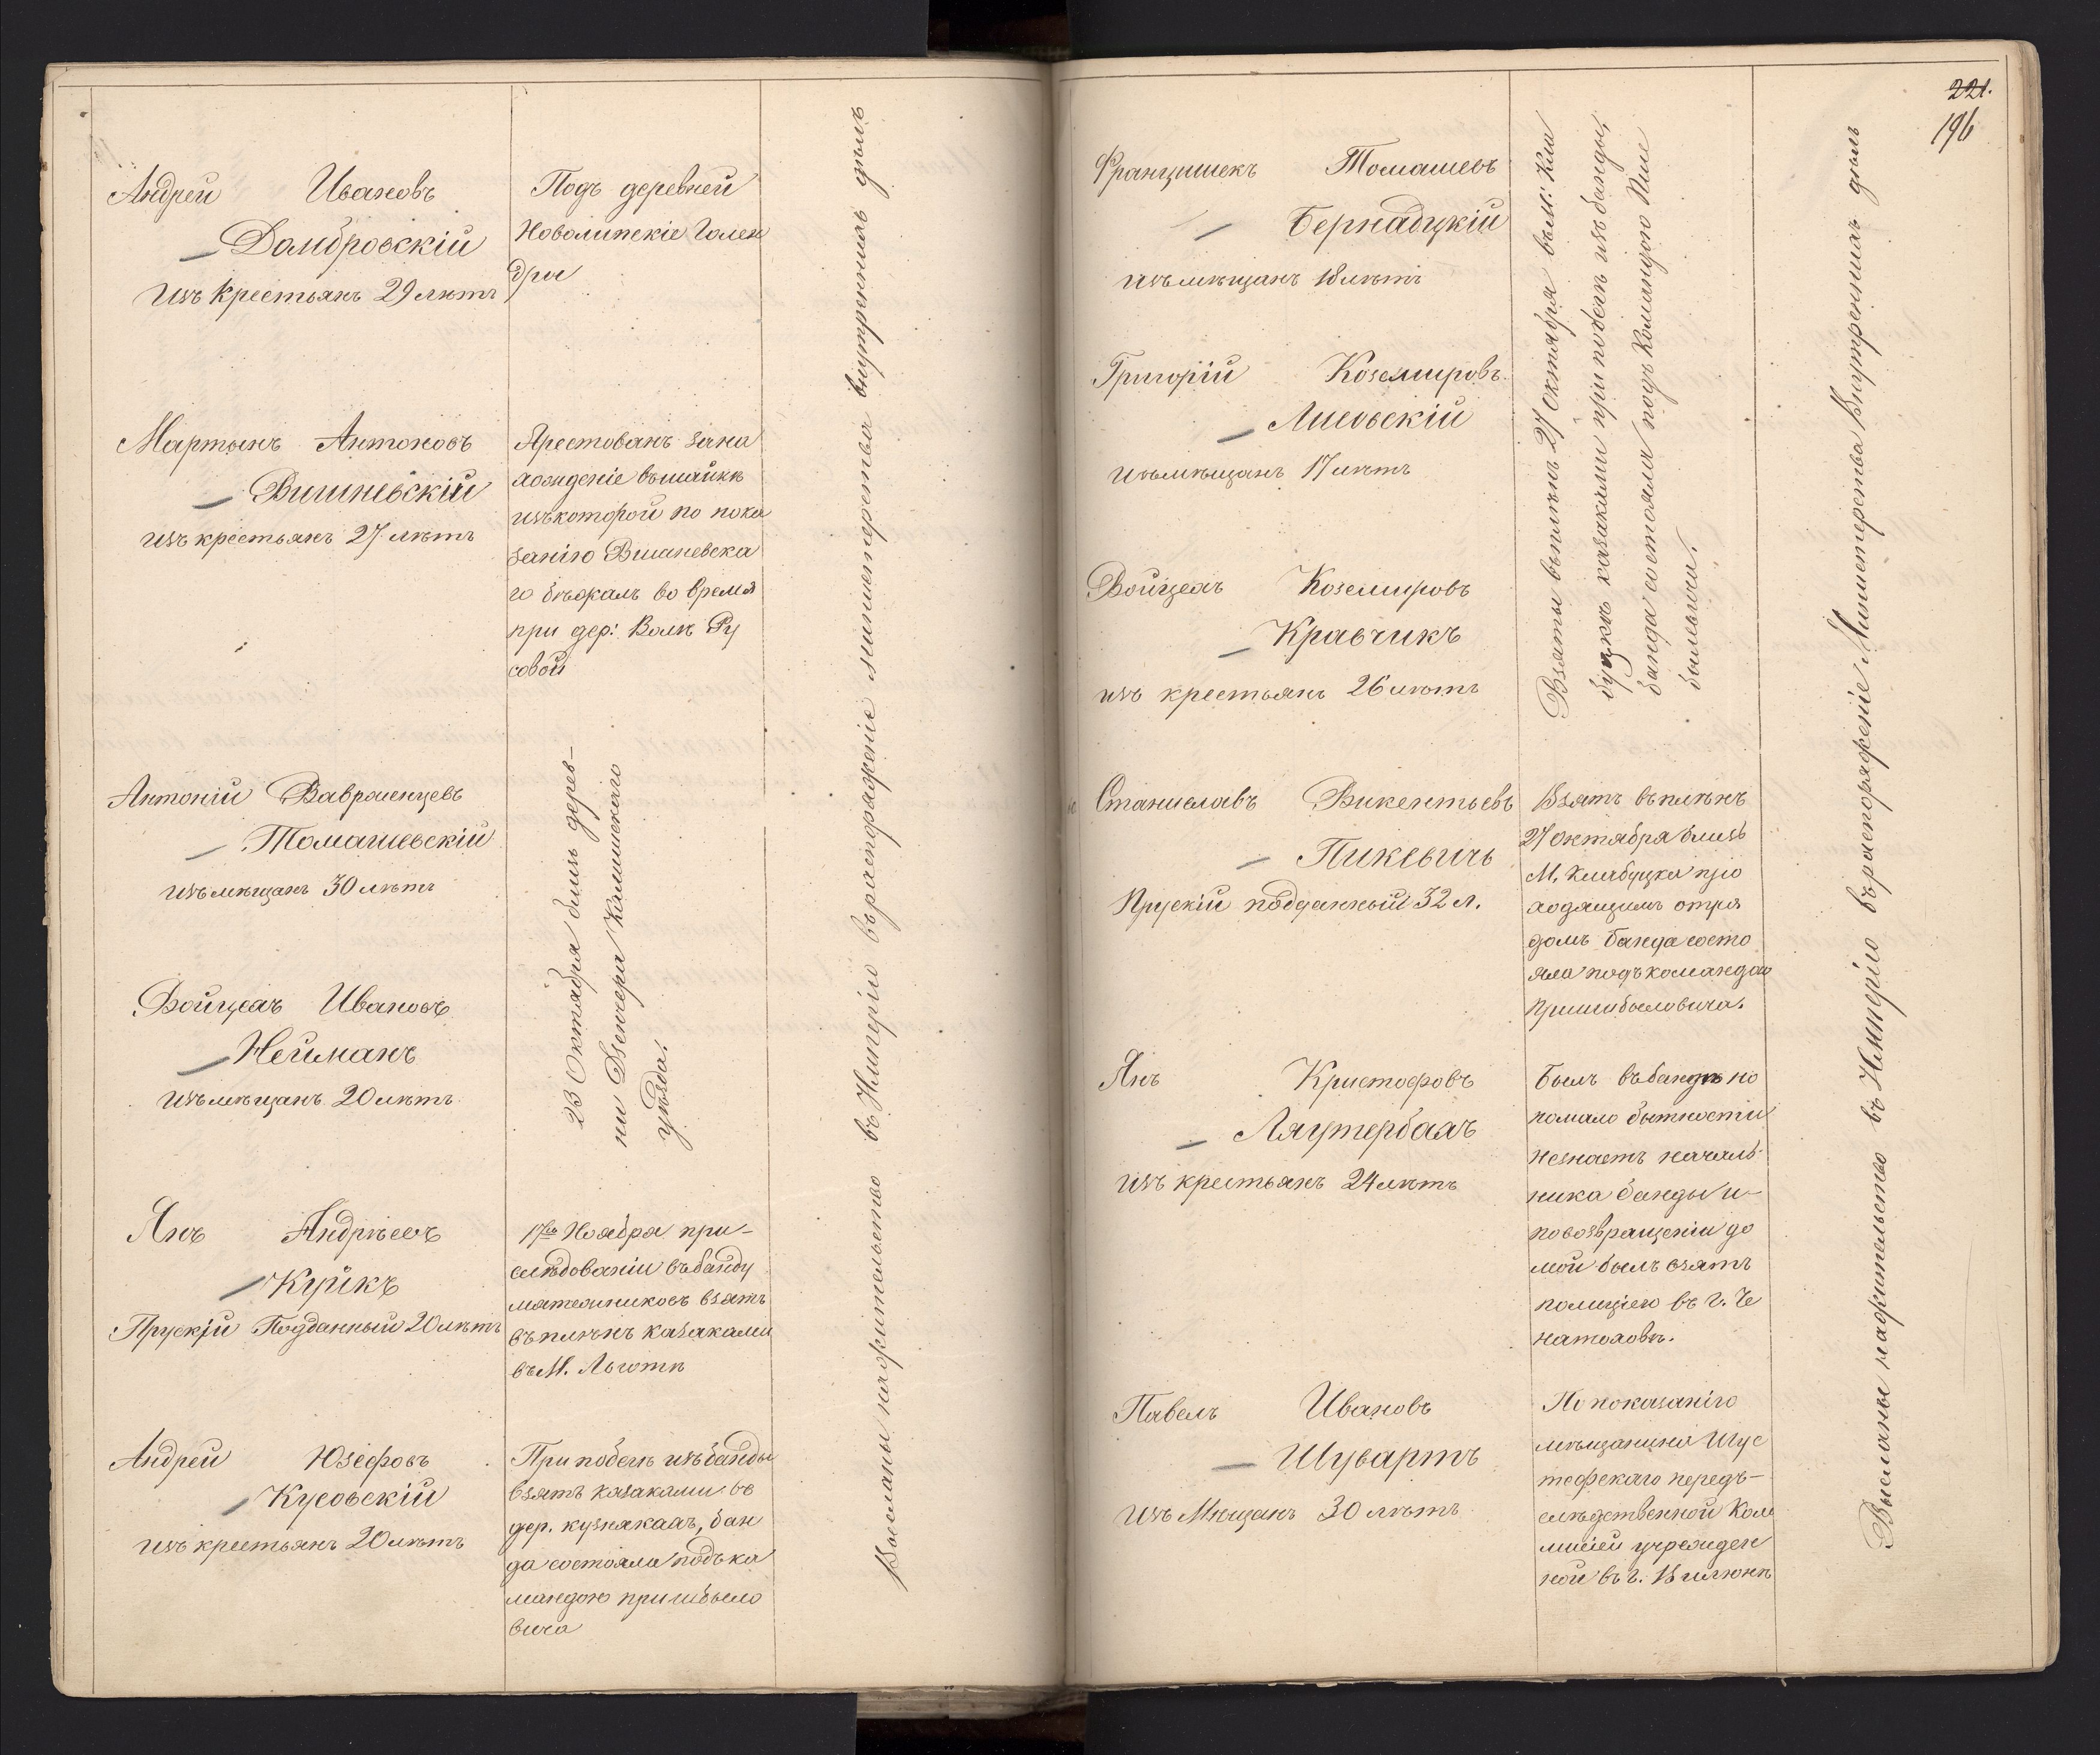 Андрей Ивановъ
Домбровскій
изъ крестьянъ 29 лѣтъ
Подъ деревней
Новолипскіе Голен
дри
Мартынъ Антоновъ
Вишневскій
изъ крестьянъ 27 лѣтъ
Арестованъ зана
хожденіе въшайкѣ
изъкоторой по пока
занію Вишневска
го бѣжалъ во время
при дер: Волѣ Ру
совой
Антоній Вавржинцевъ
Томашевскій
изъ мѣщанъ 30 лѣтъ
Войцехъ Ивановъ
Нейманъ
изъ мѣщанъ 20 лѣтъ
23 Октября близь дерев-
ни Дзенчера Калишскаго
уѣзда.
Янъ Андрѣевъ
Куйкъ
Прускій Подданный 20 лѣтъ
17го Ноября при-
слѣдованіи въбанду
мятежниковъ взятъ
въ плѣнъ казаками
въ М. Льготѣ
Андрей Юзефовъ
Кусовскій
изъ крестьянъ 20 лѣтъ
При побегѣ изъ банды
взятъ казаками въ
дер. кузнякахъ, бан
да состояла подъ ка
мандою пришбыло
вича
Высланы нажительство въ Имперію въраспоряженіе министерства внутреннихъ дѣлъ
221.
196
Францишекъ Томашевъ
Бернадцкій
изъ мѣщанъ 18 лѣтъ
Григорій Коземировъ
Лисовскій
изъ мѣщанъ 17 лѣтъ
Войцехъ Коземировъ
Кравчикъ
изъ крестьянъ 26 лѣтъ
Взяты въ плѣнъ 27 Октября въ м: Кло
буцкъ казаками при побегѣ изъ банды,
банда состояла подъ Командою Пше
былыча.
Станиславъ Викентьевъ
Пикевичъ
Прускій подданный 32 л.
Взятъ въ плѣнъ
27 Октября близь
М. Клабуцка про
ходящимъ отря
домъ банда состо
яла подъ командою
Пришибыловича.
Янъ Кристофовъ
Ляутербахъ
изъ крестьянъ 24 лѣтъ
Былъ въ бандѣ но
помало бытности
незнаетъ началь-
ника банды и-
повозвращеніи до
мой былъ взятъ
полиціею въ г. Че
натоховѣ.
Павелъ Ивановъ
Шувартъ
изъ Мѣщанъ 30 лѣтъ
По показанію
мѣщанина Шус
тефскаго передъ-
слѣдственной Ком
мисіей учрежден
ной въ г. Вилюнѣ
Высланы нажительство въ Имперію въраспоряженіе Министерства Внутреннихъ дѣлъ